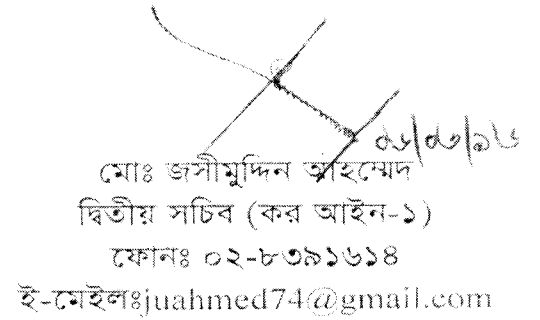 ০৬/০৩/১৬
মোঃ জসীমুদ্দিন আহম্মেদ
দ্বিতীয় সচিব (কর আইন-১)
ফোনঃ ০২-৮৩৯১৬১৪
ই-মেইলঃjuahmed74@gmail.com